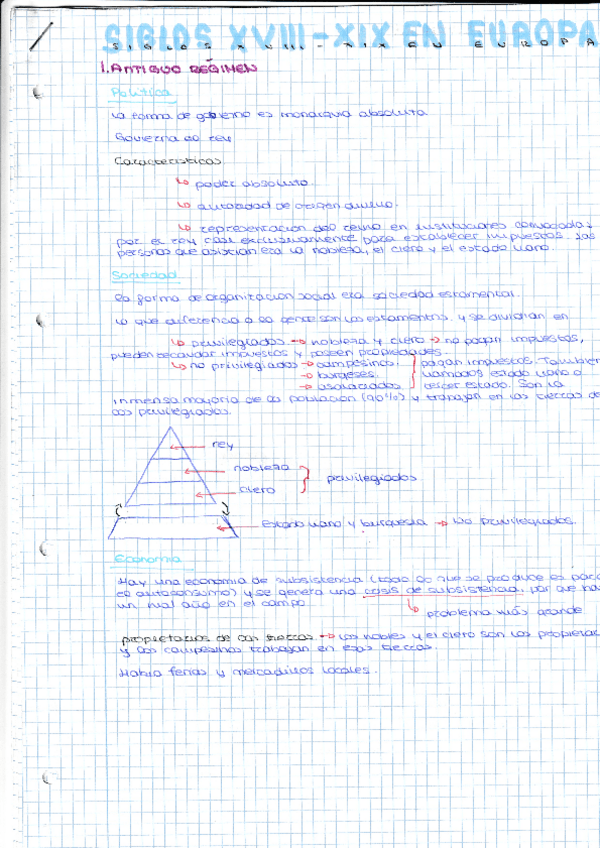 SIGLOS XVIII-XIX EN EUROPA
SIGLOS XVIII-XIX EN EUROPA
1. ANTIGUO REGIMEN
Política
La forma de gobierno es monarquia absoluta
Govierna el rey
Características
↳ poder absoluto.
↳ autoridad de origen divino.
↳ representacion del reino en instituciones convocadas
por el rey casi exclusivamente para establecer impuestos. Las
personas que asistian era la nobleza, el clero y el estado llano.
Sociedad
La forma de organizacion social era sociedad estamental.
Lo que diferencia a la gente son los estamentos, y se dividian en
↳ privilegiados → nobleza y clero → no pagan impuestos,
pueden recaudar impuestos y poseen propiedades.
↳ no privilegiados → campesinos. pagan impuestos. Tambien
→ burgeses. llamados estado llano o
→ asalariados tercer estado. Son la
inmensa mayoria de la poblacion (90%) y trabajan en las tierras de
los privilegiados.
rey
nobleza
clero
privilegiados
Estado llano y burguesia → No privilegiados
Economia
Hay una economia de subsistencia (todo lo que se produce es para
el autoconsumo) y se genera una crisis de subsistencia, por que hay
un mal año en el campo.
↳ problema más grande
propietarios de las tierras → Los nobles y el clero son los propietar
y los campesinos trabajan en esas tierras.
Habia ferias y mercadillos locales.